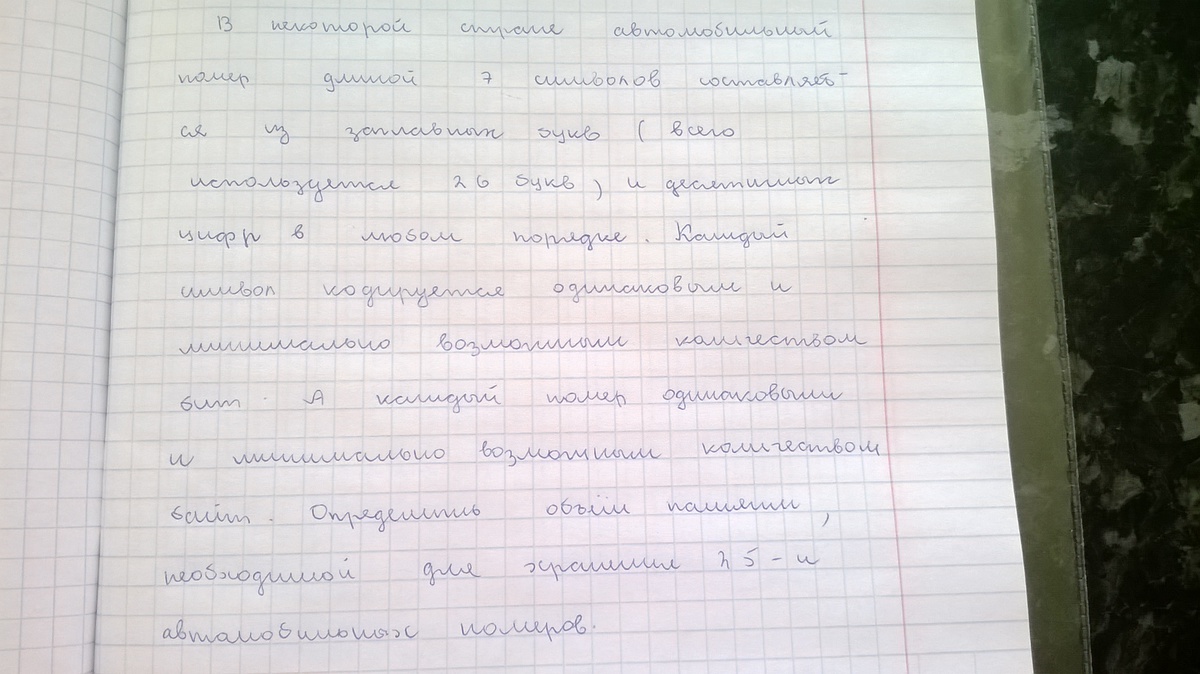 В некоторой стране автомобильный
номер длиной 7 символов составляет-
ся из заглавных букв ( всего
используется 26 букв ) и десятичных
цифр в любом порядке. Каждый
символ кодируется одинаковым и
минимально возможным количеством
бит. А каждый номер одинаковым
и минимально возможным количеством
байт. Определить объём памяти,
необходимой для хранения 25-и
автомобильных номеров.